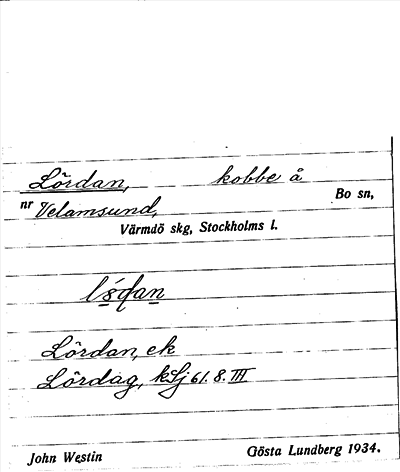 Lördan, kobbe å
nr Velamsund, Bo sn,
Värmdö skg, Stockholms l.
Lördan, ek
Lördag, kSj 61. 8. III
John Westin Gösta Lundberg 1934.